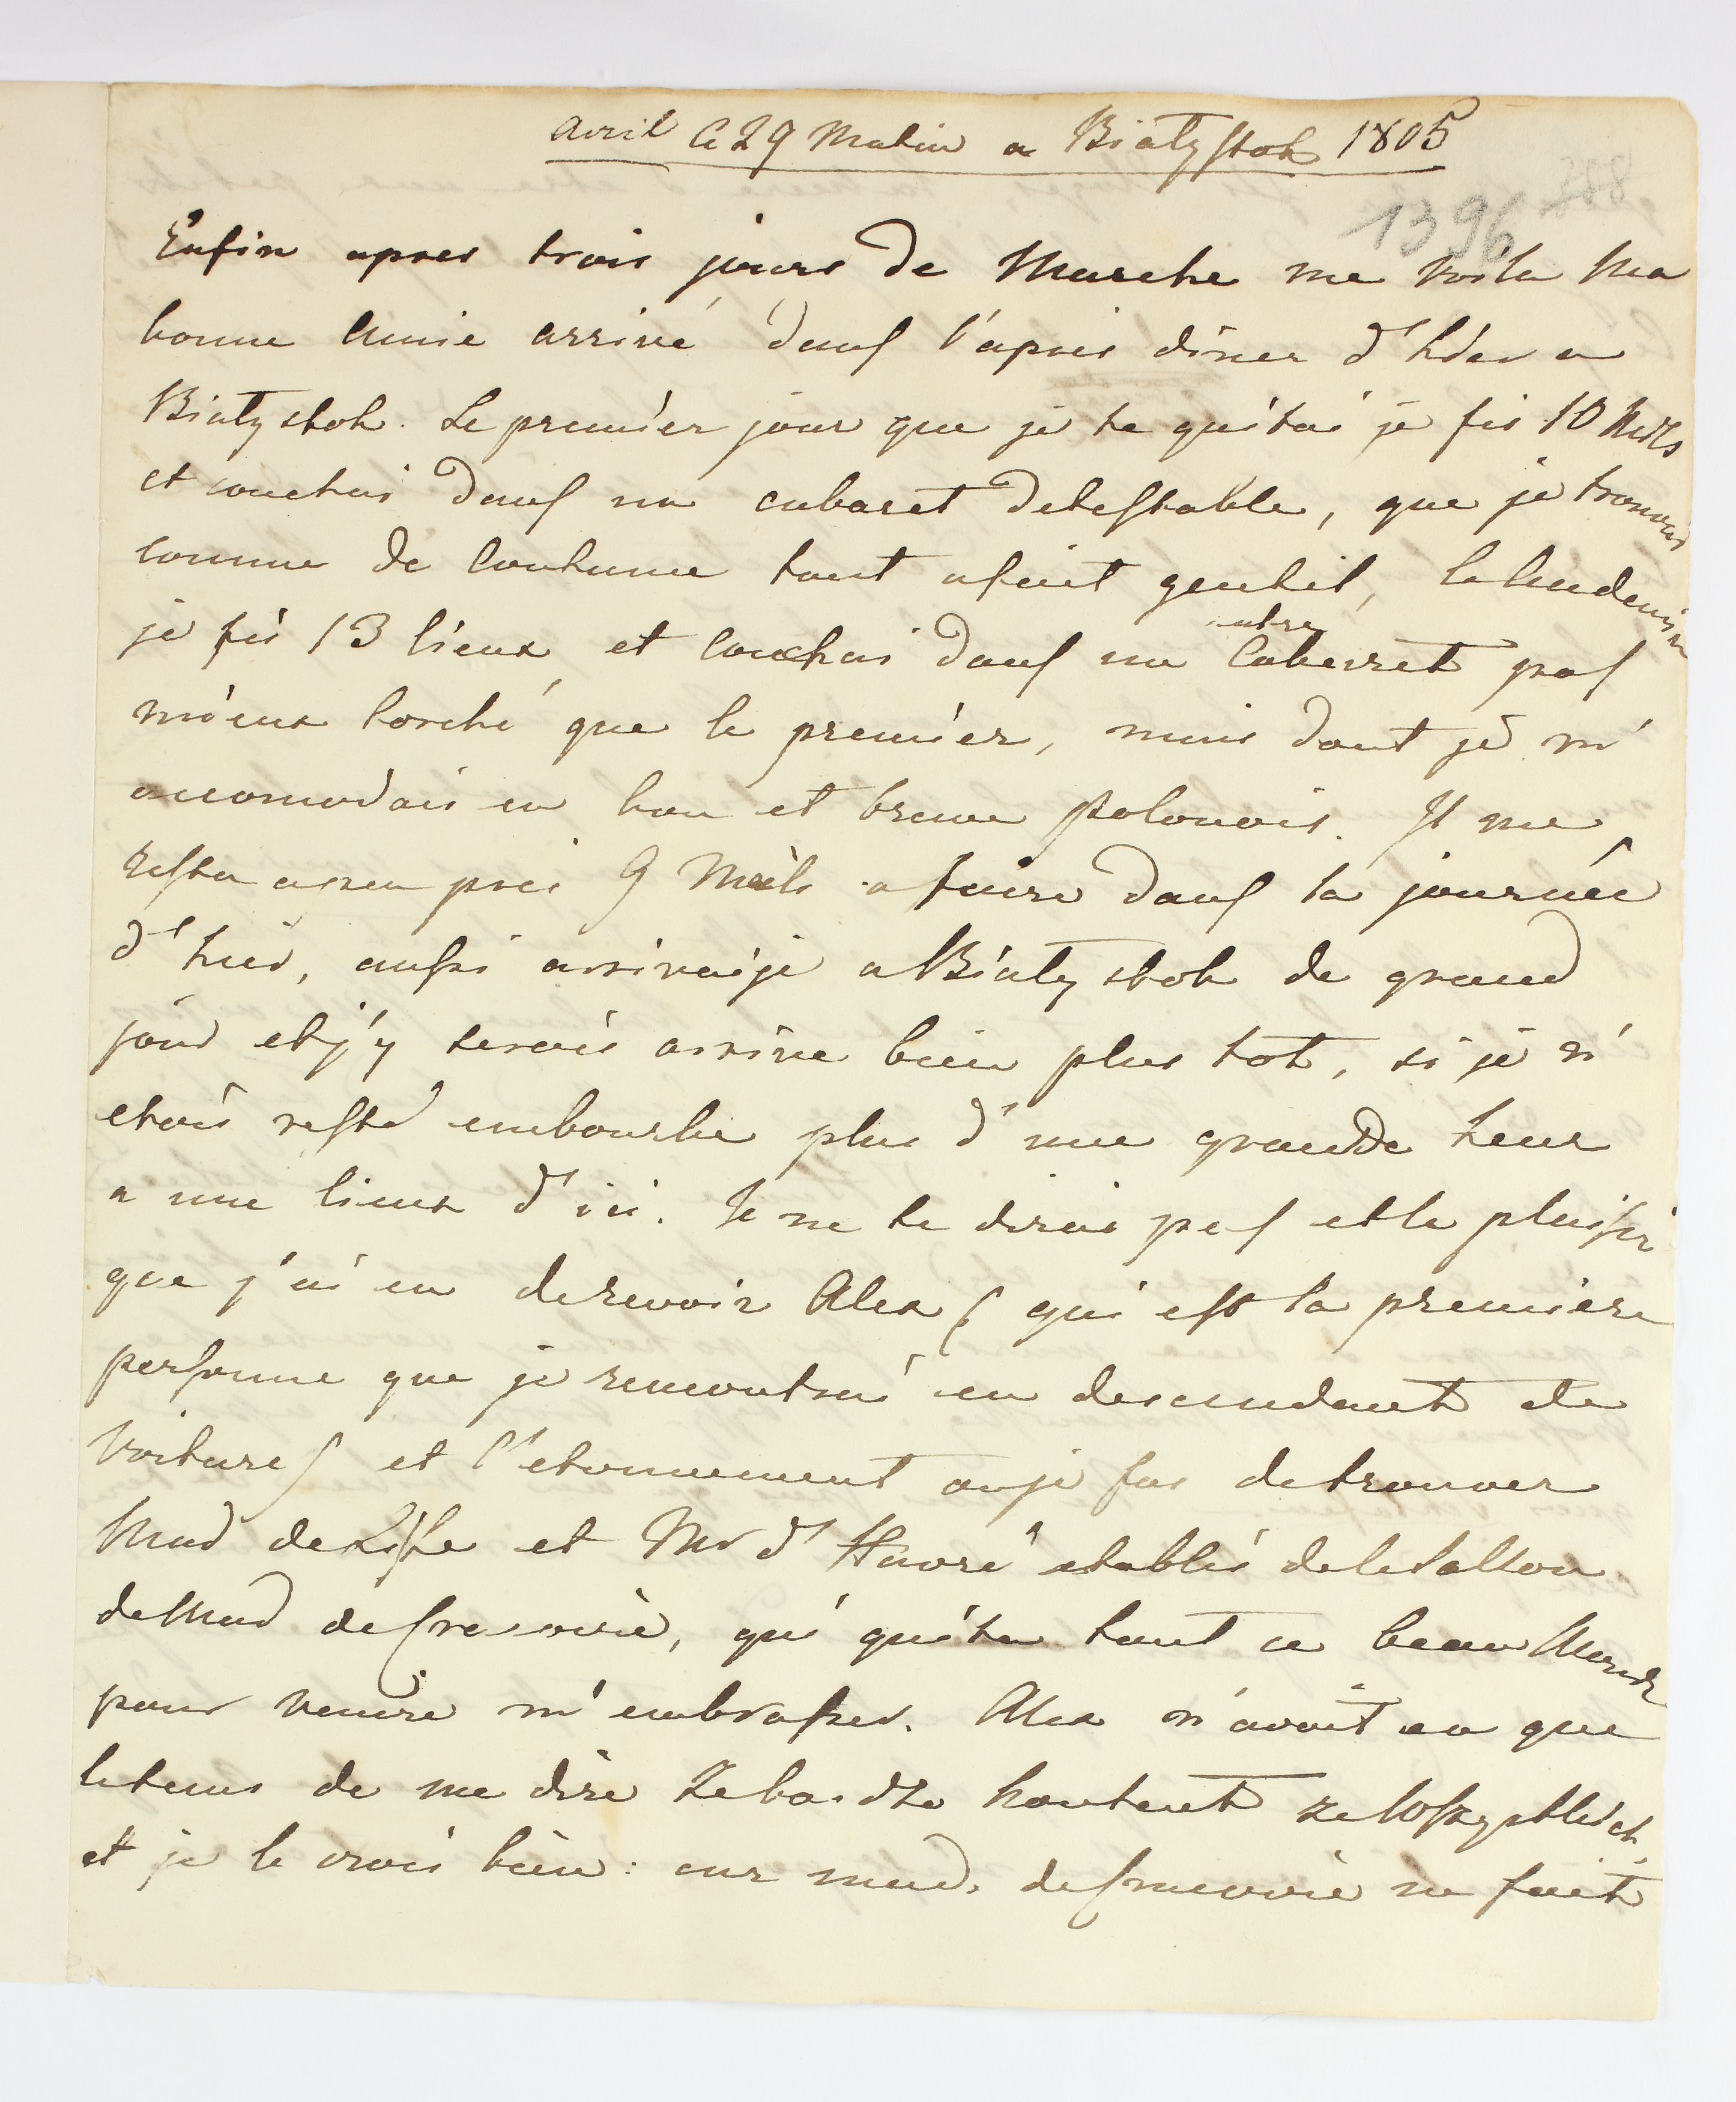 avril le 29 Matin a Białystok 1805
1396 388
Enfin apres trois jours de Marche me voila Ma
bonne Amie arrivé dans l'apres diner d'hier a
Białystok. Le premier jour que je te quitai je fis 10 Mils
et couchai dans un cabaret detestable, que je trouvai
comme de Coutume tout afait gentil, le lendemain
je fis 13 lieux, et couchai dans un autre Cabarret pas
mieux torché que le premier, mais dont je m'
accomodais en bon et brave polonois. Il me
resta a peu près 9 Mils a faire dans la journée
d'hier, aussi arrivaije a Białystok de grand
jour et j'y serais arrive bien plus tot, si je n'
etois resté embourbe plus d'une grande heur
a une lieux d'ici. Je ne te dirais pas et le plaisir
que j'ai eu de revoir Alex ( qui est la premiere
personne que je rencontrai en descendant de
Voiture) et l'etonnement ouje fus de trouver
Mad de et Mr d' Havré etablis
de Mad de , qui quita tout ce beau Monde
pour venire m'embrasser. Alex n'avait eu que
le tems de me dire ze bardzo kontent
et je le crois bien: car mad. de ne fait